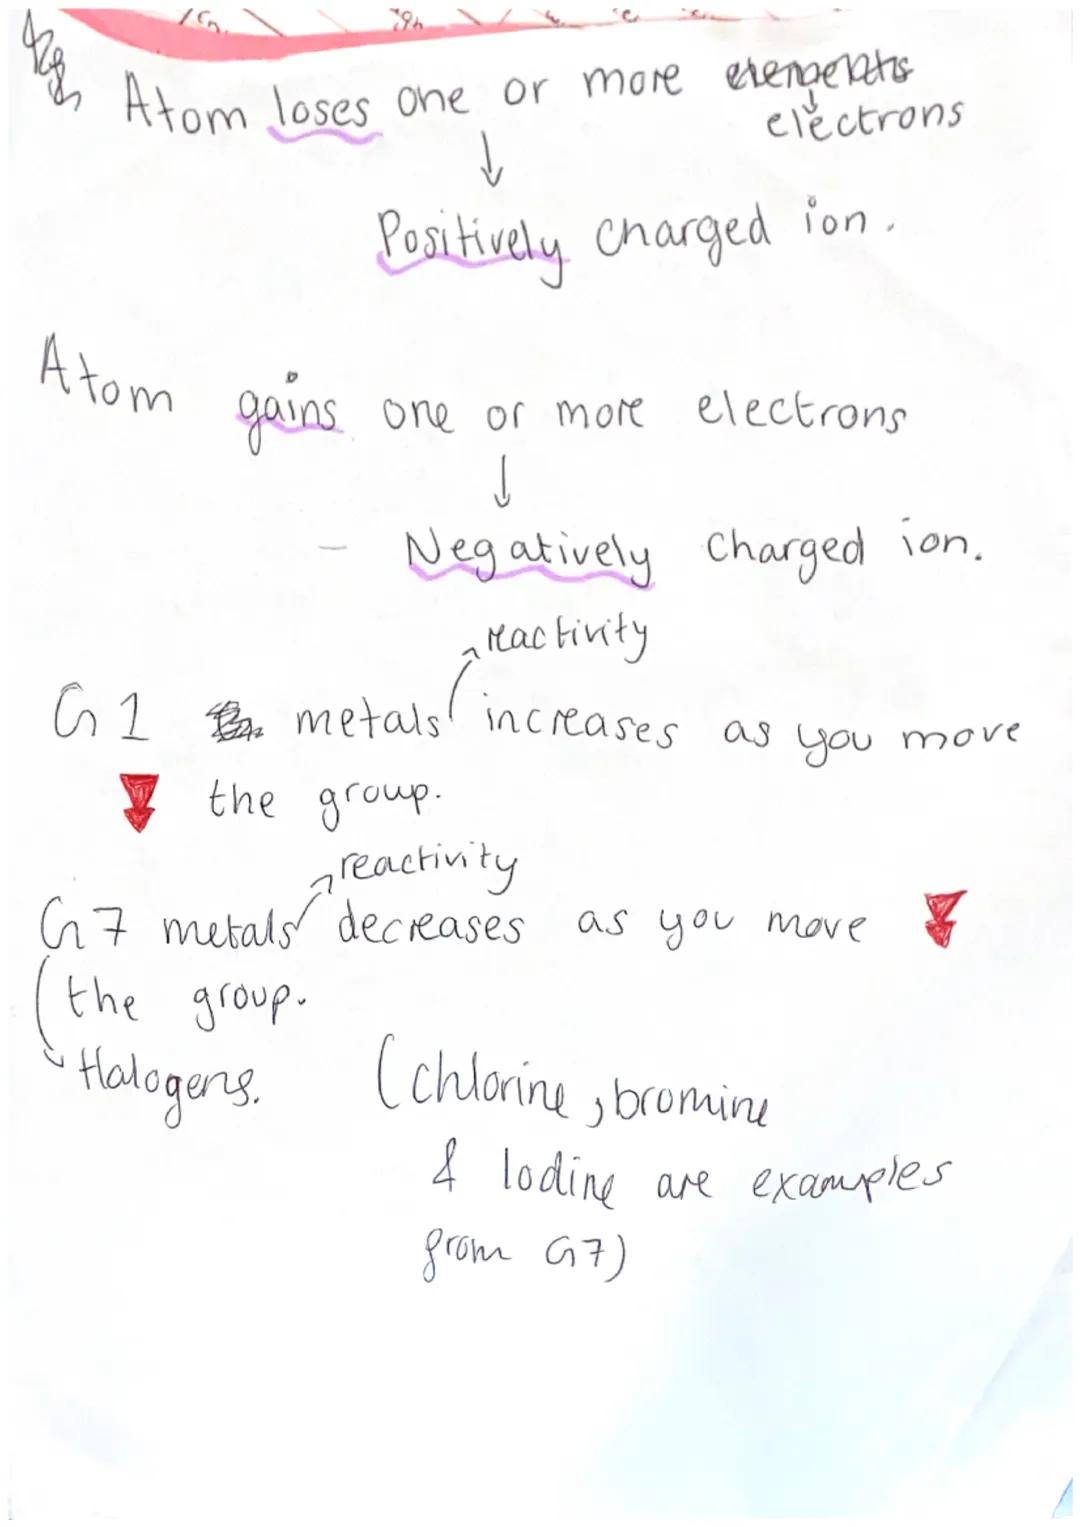 Atom loses one or more elements
electrons
↓
Positively charged ion.
Atom gains one or more electrons
↓
- Negatively charged ion.
reactivity
G1 metals increases as you move
the group.
reactivity
G7 metals decreases as you move
the group.
Halogens.
(chlorine, bromine
& Iodine are examples
from G7)